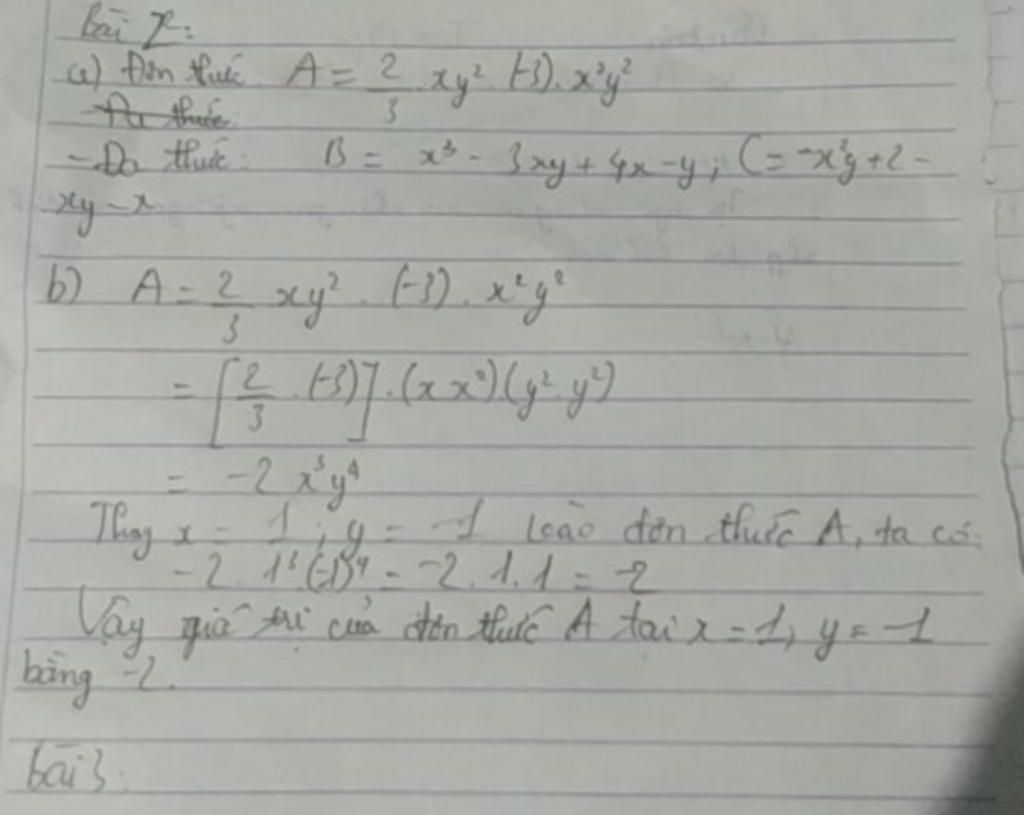 bài 2:
a) Đơn thức: A = 2/3 xy² (-3). x²y²
Đa thức:
- Đa thức: B = x³ - 3xy + 4x - y; C = -x²y + 2 -
xy - x
b) A = 2/3 xy² . (-3) . x²y²
= [2/3 . (-3)] . (x x²) (y² . y²)
= -2 x³y⁴
Thay x = 1; y = -1 vào đơn thức A, ta có:
-2 . 1³ (-1)⁴ = -2 . 1 . 1 = -2
Vậy giá trị của đơn thức A tại x = 1, y = -1
bằng -2.
bài 3: